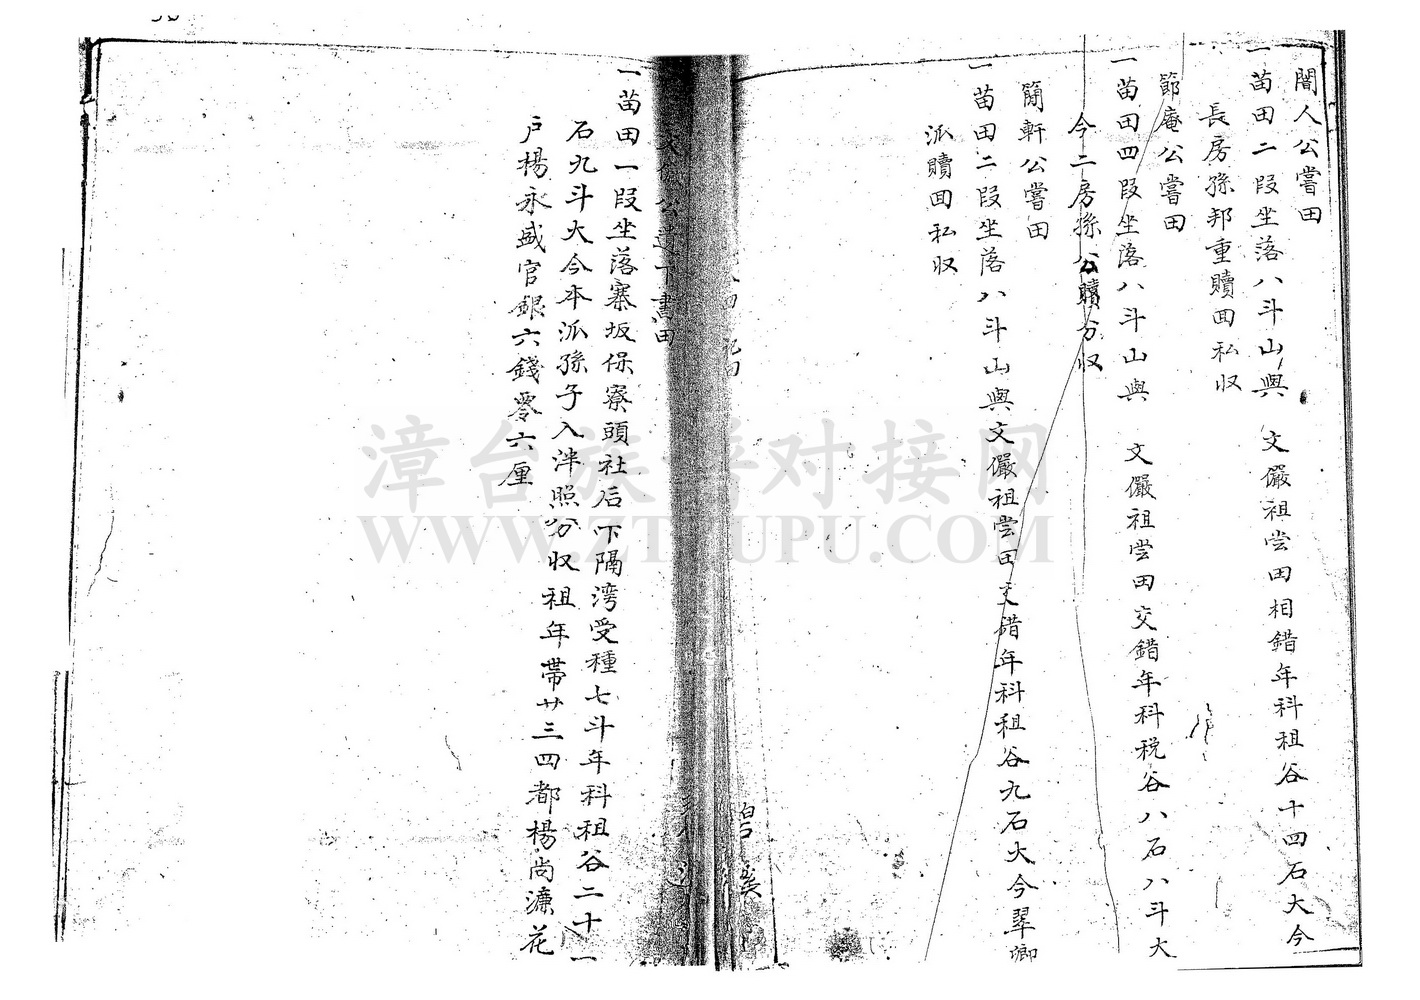 闇人公嘗田
一苗田二段坐落八斗山與 文儼祖尝田相錯年科租谷十四石大今
長房孫邦重贖回私収
節庵公嘗田
一苗田四段坐落八斗山與 文儼祖尝田交錯年科税谷八石八斗大
今二房孫公贖分収
簡軒公嘗田
一苗田二段坐落八斗山與文儼祖尝田交错年科租谷九石大今翠卿
派贖回私収
碧溪
公遺下書田
一苗田一段坐落寨坂保寮頭社后下隔湾受種七斗年科租谷二十一
石九斗大今本派孫子入泮照分収租年帯廿三四都楊尚濂花
户楊永盛官銀六錢零六厘
漳台族谱对接网
WWW.ZTZUPU.COM